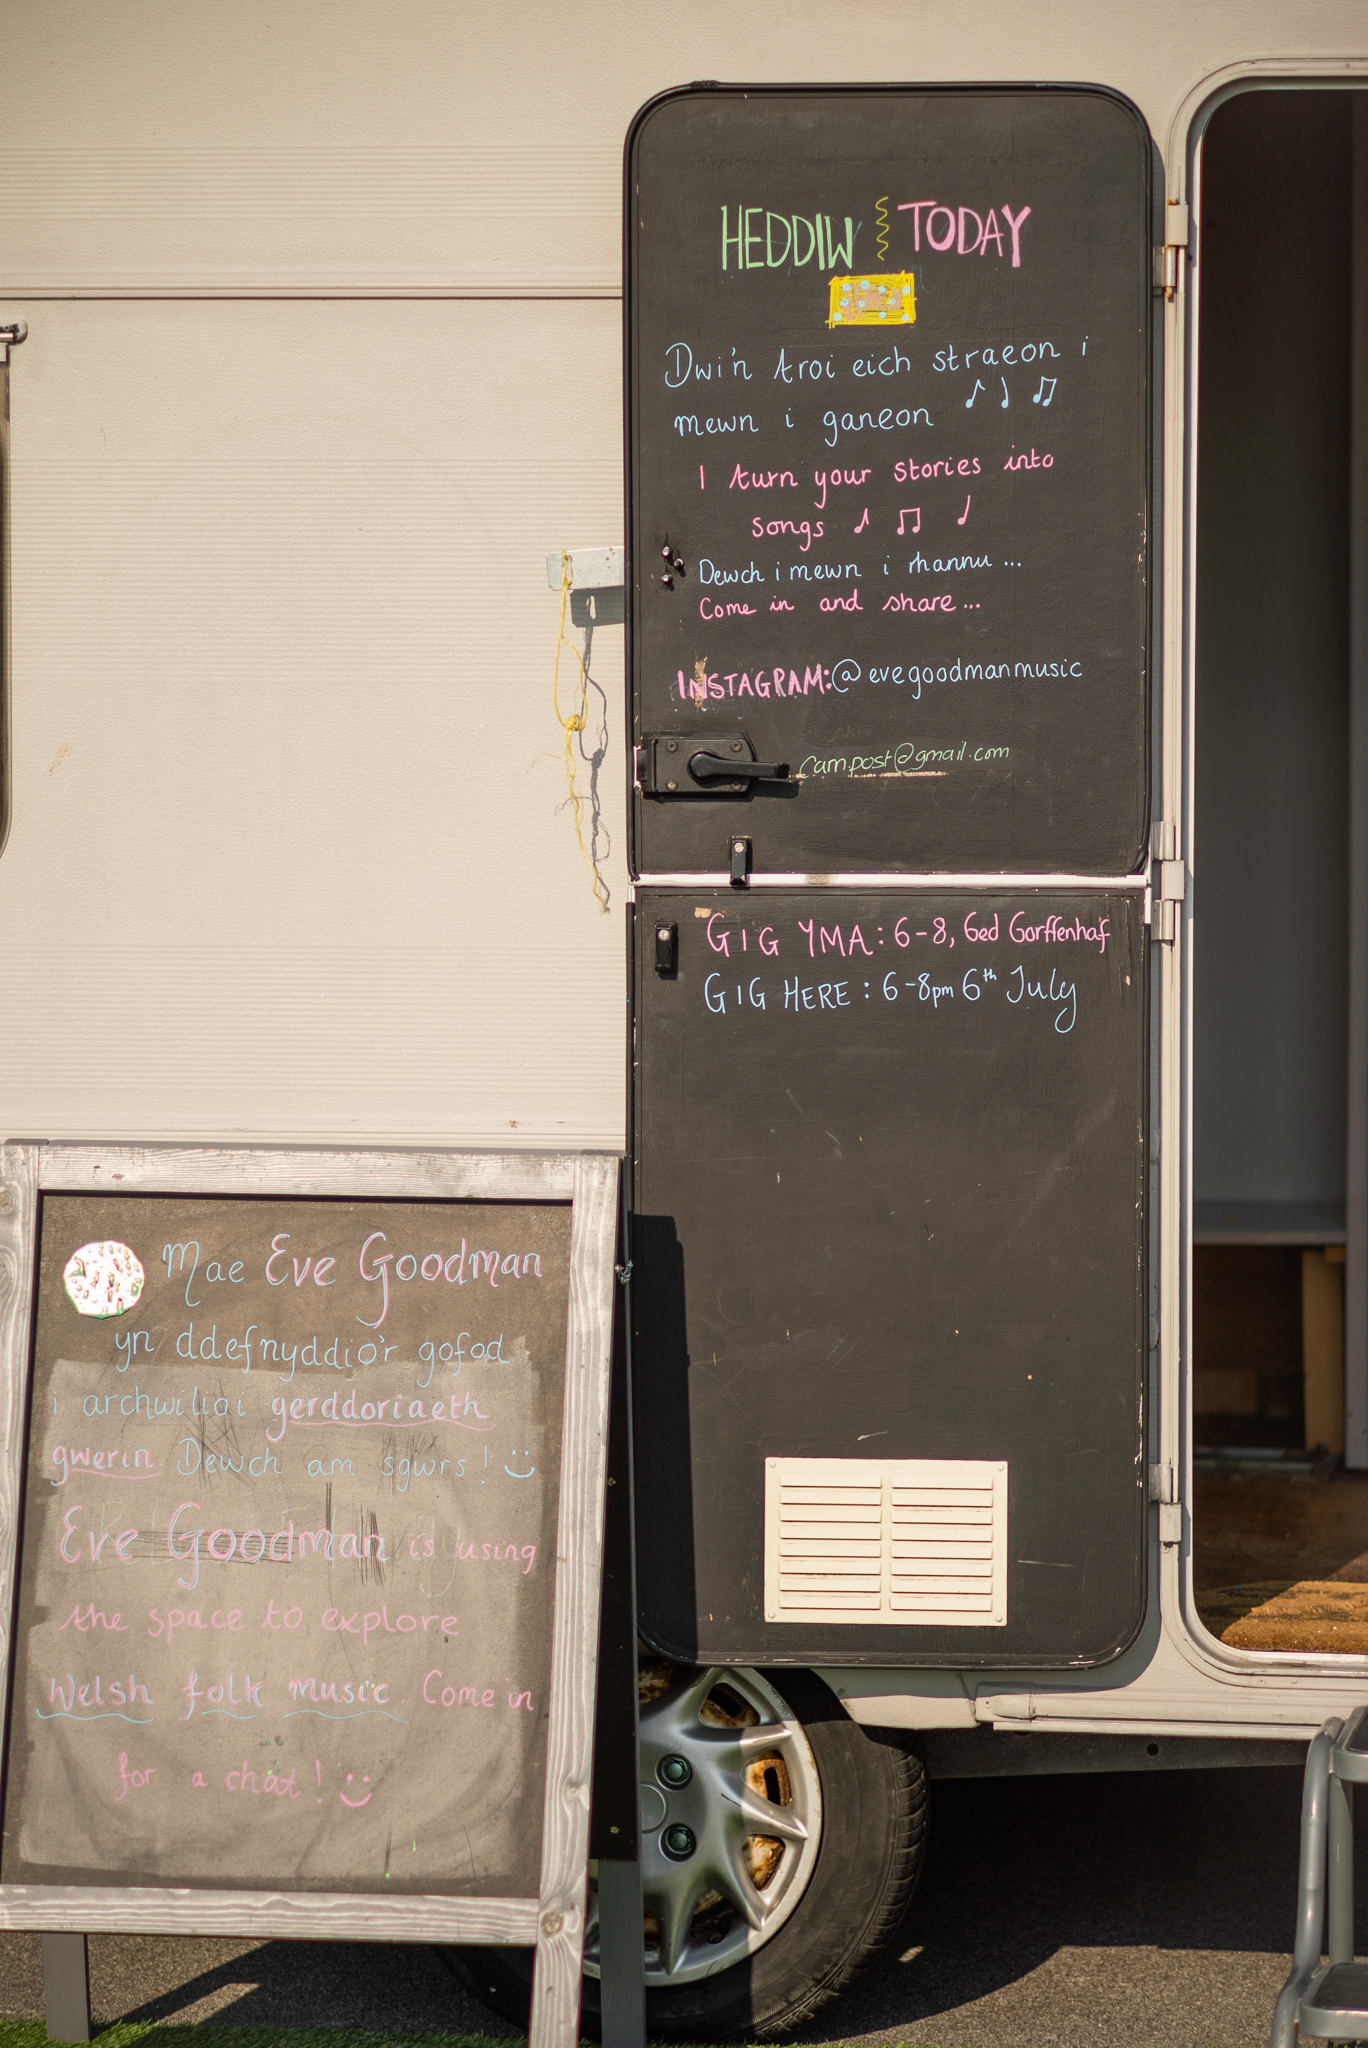 HEDDIW TODAY
Dwi'n troi eich straeon i
mewn i ganeon
I turn your stories into
songs
Dewch i mewn i rhannu...
Come in and share...
INSTAGRAM: @evegoodmanmusic
cam.post@gmail.com
GIG YMA: 6-8, 6ed Gorffenhaf
GIG HERE: 6-8pm 6th July
Mae Eve Goodman
yn ddefnyddio'r gofod
i archwilioi gerddoriaeth
gwerin. Dewch am sgwrs! :)
Eve Goodman is using
the space to explore
Welsh folk music. Come in
for a chat! :)